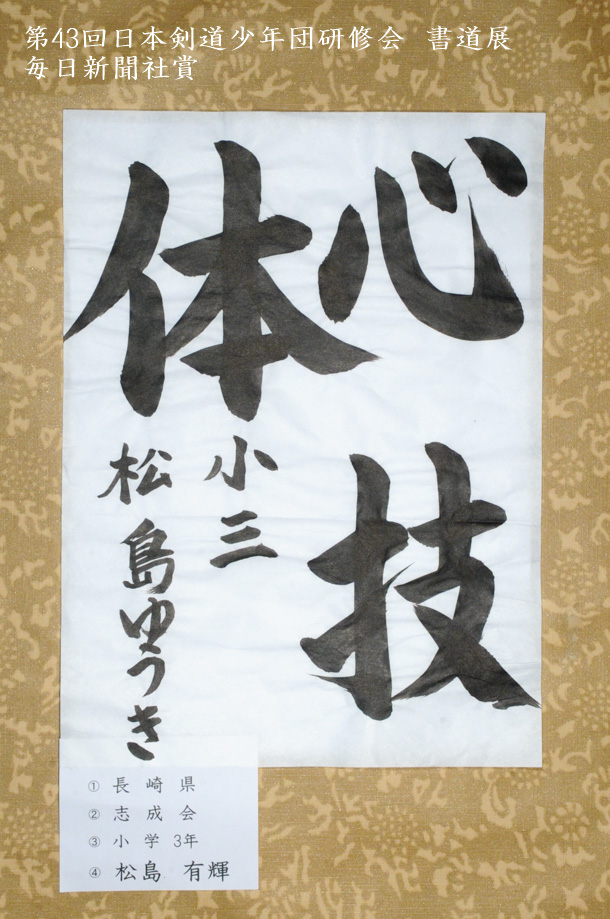 第43回日本剣道少年団研修会 書道展
毎日新聞社賞
心技
体
小三
松島ゆうき
① 長崎県
② 志成会
③ 小学 3年
④ 松島 有輝